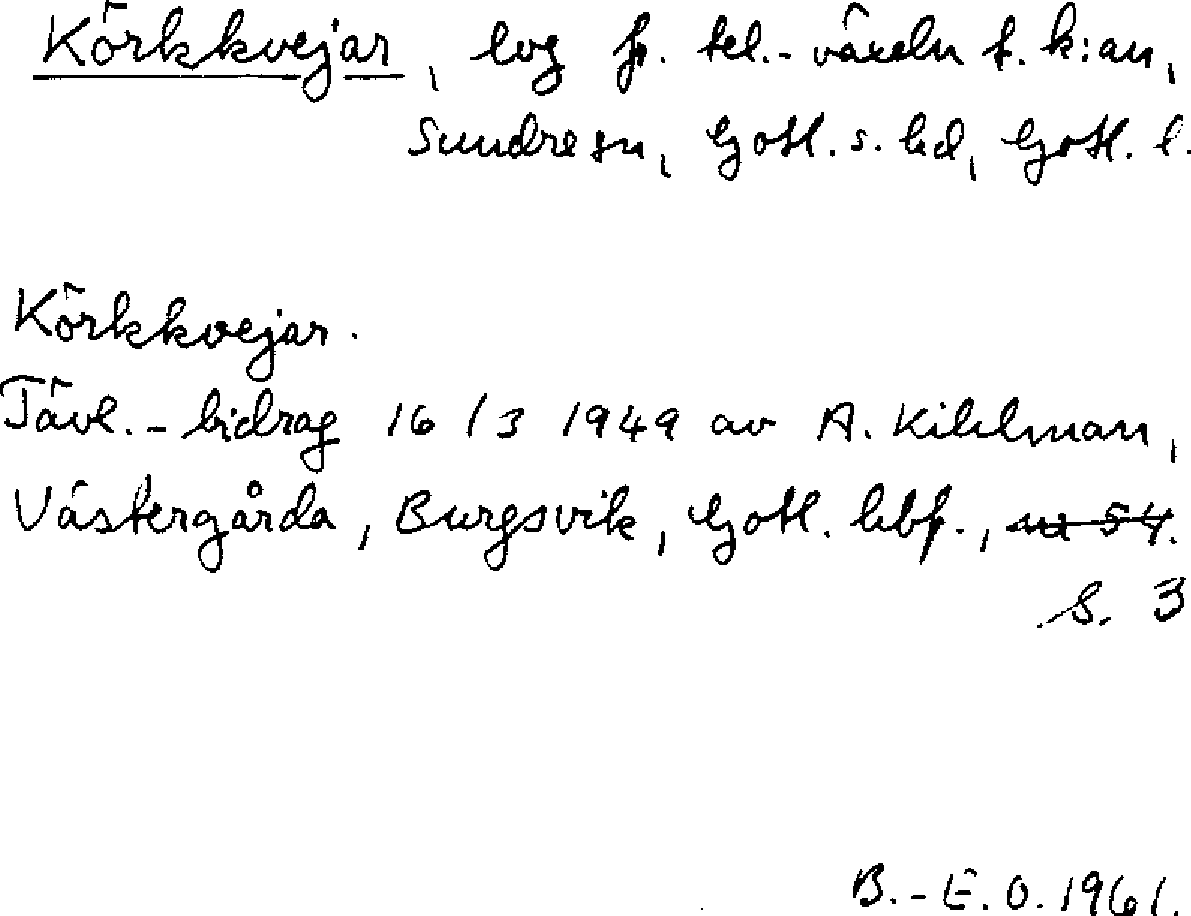 Körkkvejar, lvg fr. tel.-växeln t. k:an,
Sundre sn, Gotl. s. hd, Gotl. l.
Körkkvejar.
Tävl.-bidrag 16/3 1949 av A. Kihlman,
Västergårda, Burgsvik, Gotl. hbf.,
S. 3
B.-E. O. 1961.